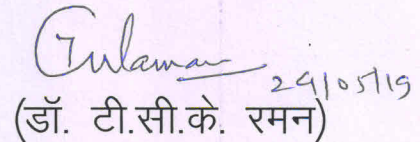 29/05/19
(डॉ. टी.सी.के. रमन)